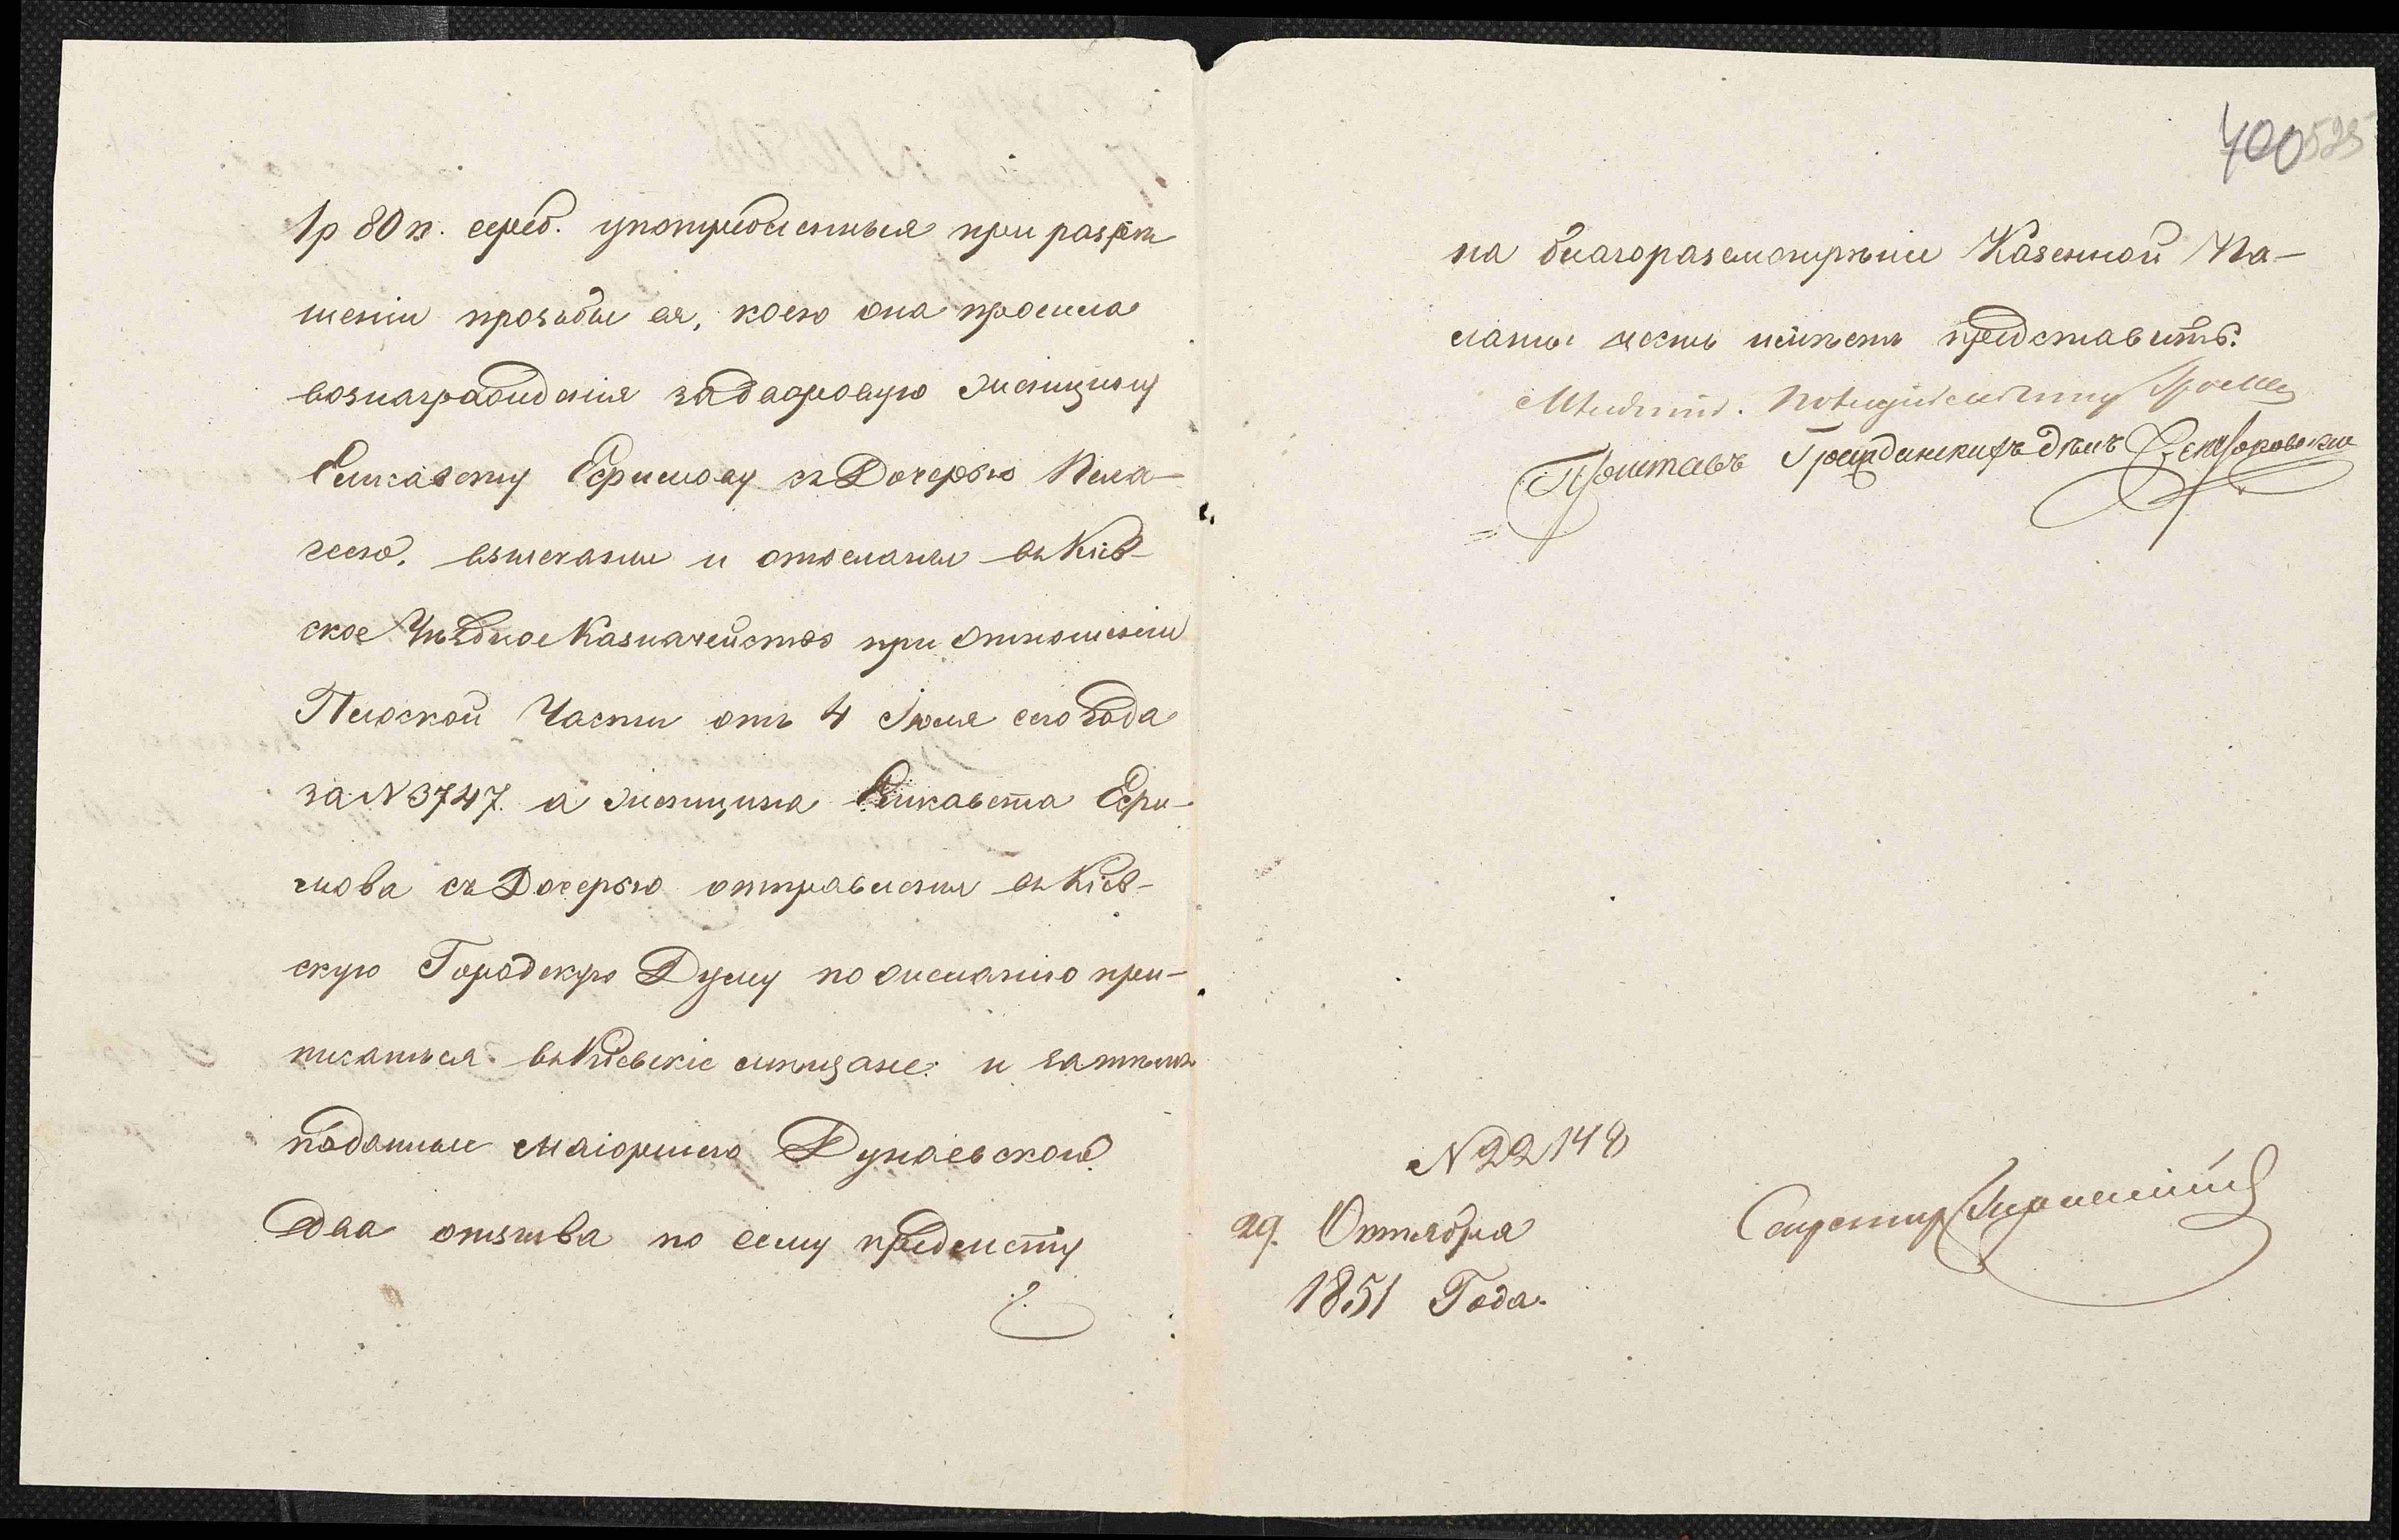 1р 80 к. сереб. употребленныя при разрѣ
шеніи прозьбы ея, коею она просила
вознагражденія за дворовую женщину
Елисавету Ефимову съ Дочерью Пела-
геею, взысканы и отосланы въ Кіев-
ское Уѣздное Казначейство при отношеніи
Плоской Части отъ 4 Іюля сего Года
за N 3747. а женщина Елисавета Ефи-
мова съ Дочерью отправлены въ Кіев-
скую Городскую Думу по желанію при-
писаться въ Кіевскіе мѣщане: и затѣмъ
поданные Маіоршею Дунаевскою
Два отзыва по сему предмету
400 525
на благоразсмотрѣніе Казенной Па-
латы честь имѣетъ представить.
Приставъ Гражданскихъ дѣлъ
N 22148
29. Октября
1851 Года.
Секретарь